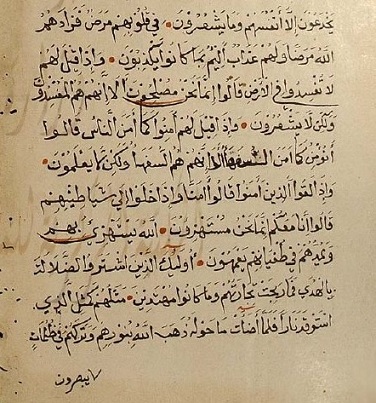 يخدعون إلا أنفسهم وما يشعرون • في قلوبهم مرض فزادهم
الله مرضا ولهم عذاب أليم بما كانوا يكذبون • وإذا قيل لهم
لا تفسدوا في الأرض قالوا إنما نحن مصلحون ألا إنهم هم المفسدون
ولكن لا يشعرون • وإذا قيل لهم آمنوا كما آمن الناس قالوا
أنؤمن كما آمن السفهاء ألا إنهم هم السفهاء ولكن لا يعلمون •
وإذا لقوا الذين آمنوا قالوا آمنا وإذا خلوا إلى شياطينهم
قالوا إنا معكم إنما نحن مستهزؤن • الله يستهزئ بهم
ويمدهم في طغيانهم يعمهون • أوليك الذين اشتروا الضلالة
بالهدى فما ربحت تجارتهم وما كانوا مهتدين • مثلهم كمثل الذي
استوقد نارا فلما أضات ما حوله ذهب الله بنورهم وتركهم في ظلمات
لا يبصرون